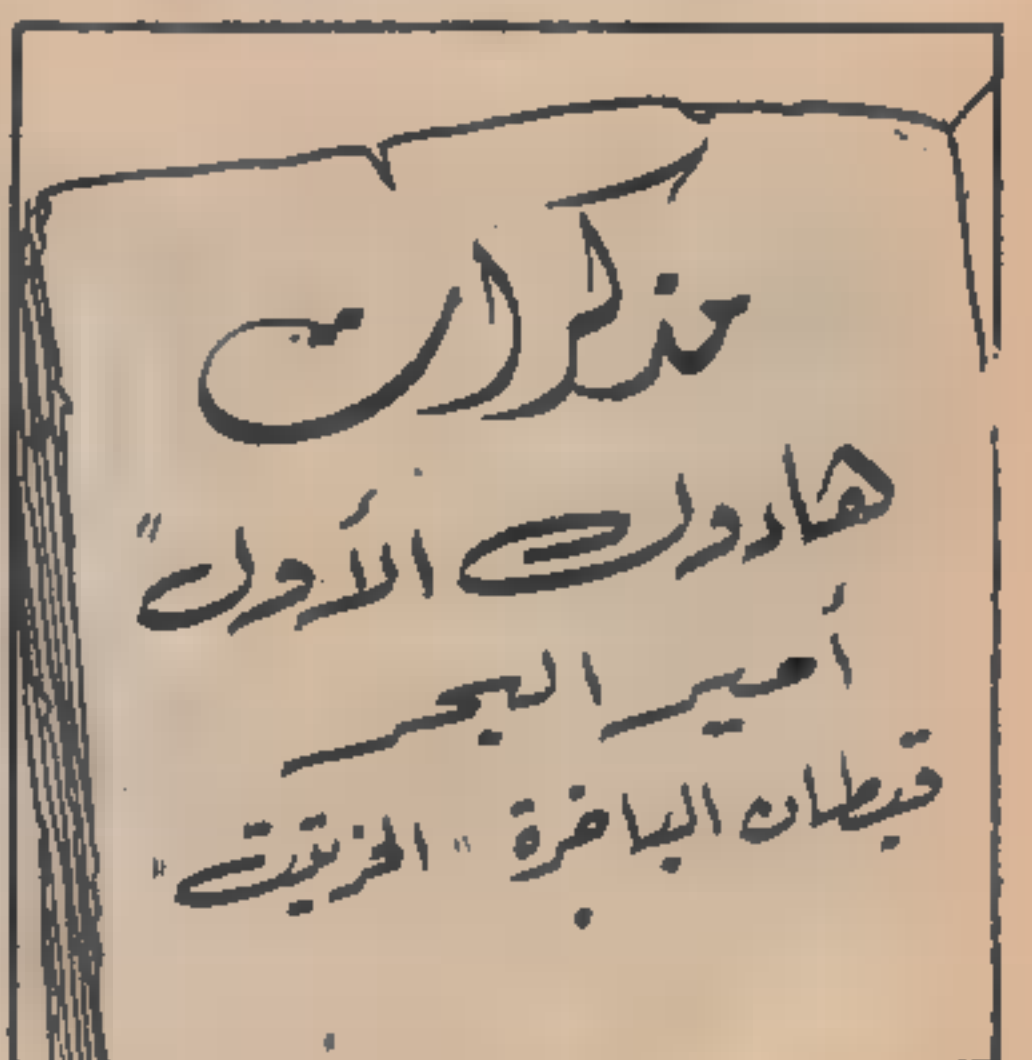 مذكرات
هادوك الأول"
أمير البحر
قبطان الباخرة "الخريتيت"